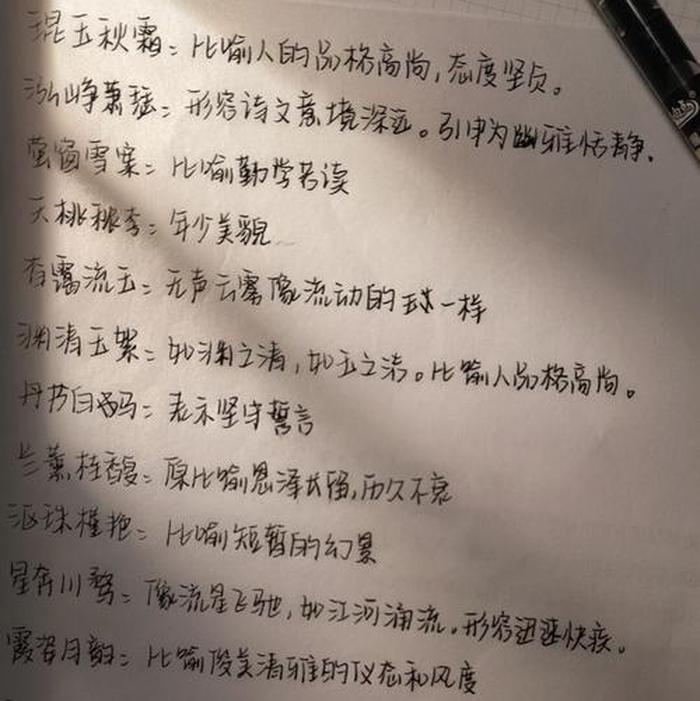 琨玉秋霜：比喻人的品格高尚，态度坚贞。
泓峥萧瑟：形容诗文意境深远。引申为幽雅恬静。
萤窗雪案：比喻勤学苦读
夭桃秾李：年少美貌
有霭流玉：无声云雾像流动的珠一样
渊清玉絜：如渊之清，如玉之洁。比喻人品格高尚。
丹书白马：表示坚守誓言
兰薰桂馥：原比喻恩泽长留，历久不衰
沤珠槿艳：比喻短暂的幻景
星奔川鹜：像流星飞驰，如江河涌流。形容迅速快疾。
霞姿月韵：比喻俊美清雅的仪态和风度